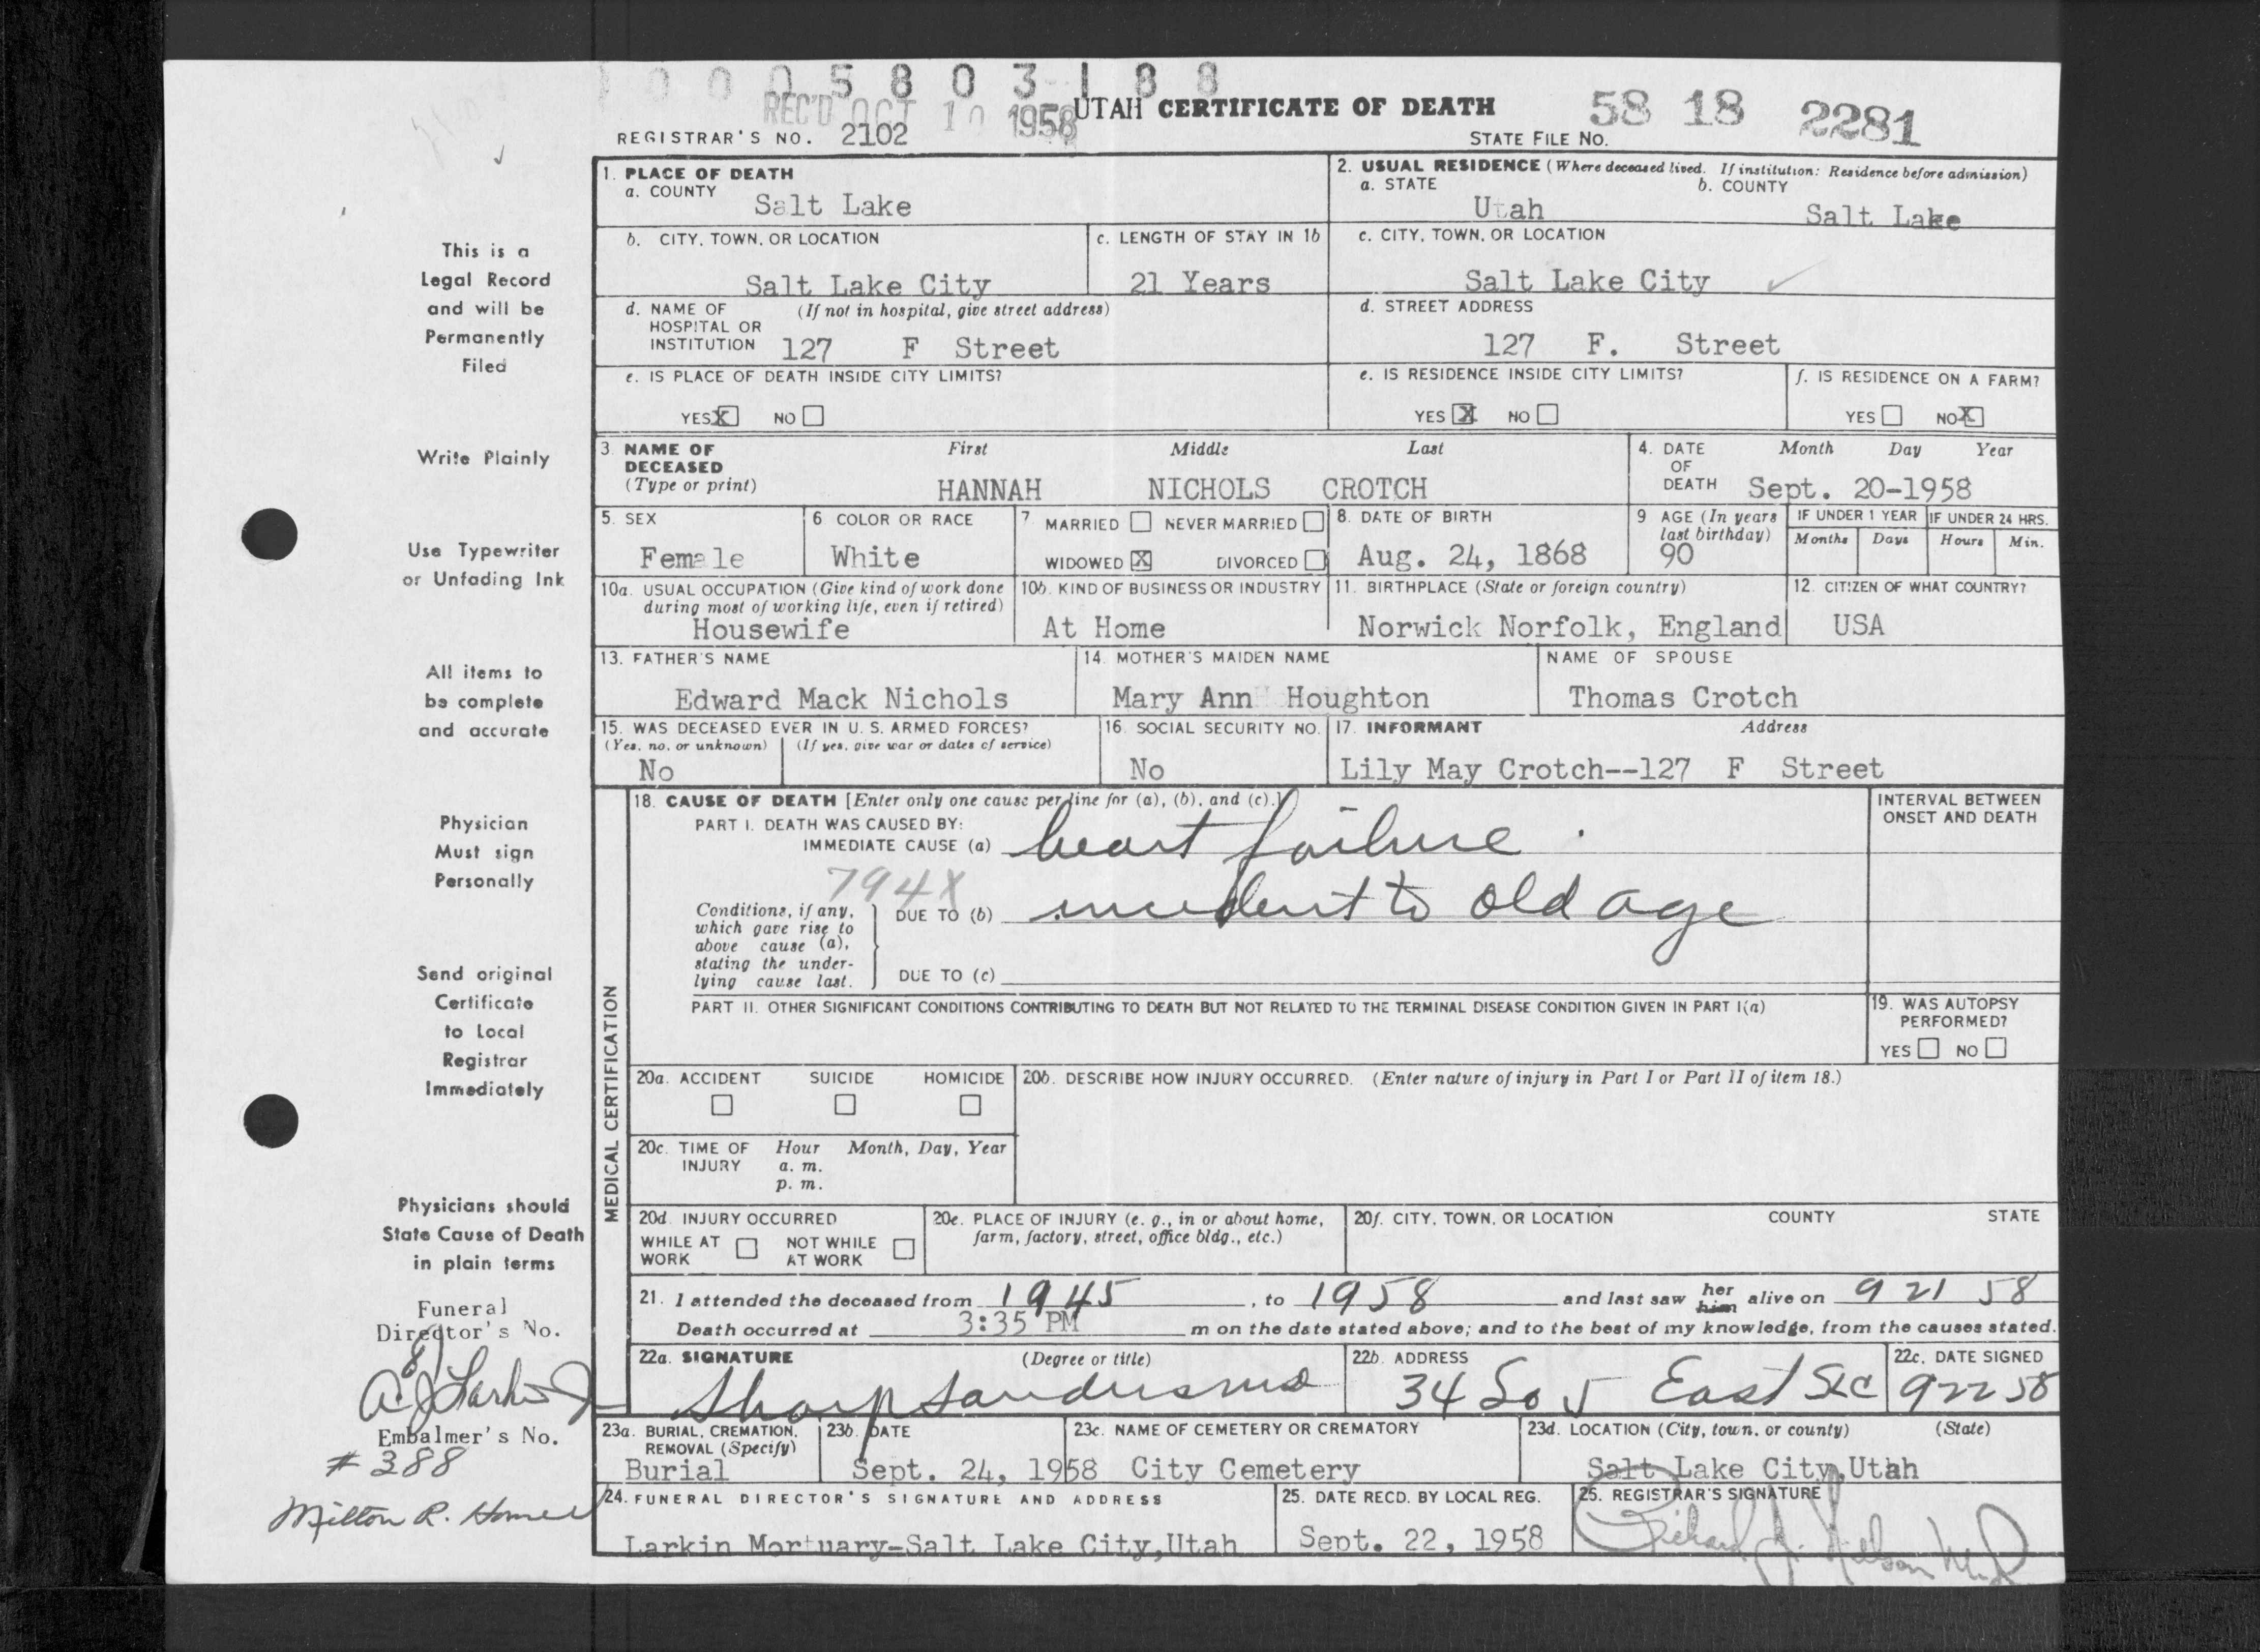 1 0 0 0 5 8 0 3 1 8 8
REC'D OCT 10 1958
UTAH CERTIFICATE OF DEATH
58 18 2281
REGISTRAR'S NO. 2102
STATE FILE NO.
1. PLACE OF DEATH
a. COUNTY
Salt Lake
2. USUAL RESIDENCE (Where deceased lived. If institution: Residence before admission)
a. STATE b. COUNTY
Utah Salt Lake
b. CITY, TOWN, OR LOCATION
Salt Lake City
c. LENGTH OF STAY IN 1b
21 Years
c. CITY, TOWN, OR LOCATION
Salt Lake City
d. NAME OF (If not in hospital, give street address)
HOSPITAL OR
INSTITUTION 127 F Street
d. STREET ADDRESS
127 F. Street
e. IS PLACE OF DEATH INSIDE CITY LIMITS?
YES X NO
e. IS RESIDENCE INSIDE CITY LIMITS?
YES X NO
f. IS RESIDENCE ON A FARM?
YES NO X
3. NAME OF First Middle Last
DECEASED
(Type or print) HANNAH NICHOLS CROTCH
4. DATE Month Day Year
OF
DEATH Sept. 20-1958
5. SEX
Female
6 COLOR OR RACE
White
7. MARRIED NEVER MARRIED
WIDOWED X DIVORCED
8. DATE OF BIRTH
Aug. 24, 1868
9 AGE (In years
last birthday)
90
IF UNDER 1 YEAR
Months Days
IF UNDER 24 HRS.
Hours Min.
10a. USUAL OCCUPATION (Give kind of work done
during most of working life, even if retired)
Housewife
10b. KIND OF BUSINESS OR INDUSTRY
At Home
11. BIRTHPLACE (State or foreign country)
Norwick Norfolk, England
12. CITIZEN OF WHAT COUNTRY?
USA
13. FATHER'S NAME
Edward Mack Nichols
14. MOTHER'S MAIDEN NAME
Mary Ann Houghton
NAME OF SPOUSE
Thomas Crotch
15. WAS DECEASED EVER IN U. S. ARMED FORCES?
(Yes, no, or unknown) (If yes, give war or dates of service)
No
16. SOCIAL SECURITY NO.
No
17. INFORMANT Address
Lily May Crotch--127 F Street
18. CAUSE OF DEATH [Enter only one cause per line for (a), (b), and (c).]
PART I. DEATH WAS CAUSED BY:
IMMEDIATE CAUSE (a) heart failure
INTERVAL BETWEEN
ONSET AND DEATH
794X
Conditions, if any,
which gave rise to
above cause (a),
stating the under-
lying cause last.
DUE TO (b) incident to old age
DUE TO (c)
PART II. OTHER SIGNIFICANT CONDITIONS CONTRIBUTING TO DEATH BUT NOT RELATED TO THE TERMINAL DISEASE CONDITION GIVEN IN PART I(a)
19. WAS AUTOPSY
PERFORMED?
YES NO
MEDICAL CERTIFICATION
20a. ACCIDENT SUICIDE HOMICIDE
20b. DESCRIBE HOW INJURY OCCURRED. (Enter nature of injury in Part I or Part II of item 18.)
20c. TIME OF Hour Month, Day, Year
INJURY a. m.
p. m.
20d. INJURY OCCURRED
WHILE AT NOT WHILE
WORK AT WORK
20e. PLACE OF INJURY (e. g., in or about home,
farm, factory, street, office bldg., etc.)
20f. CITY, TOWN, OR LOCATION COUNTY STATE
21. I attended the deceased from 1945, to 1958 and last saw her him alive on 9 21 58
Death occurred at 3:35 PM m on the date stated above; and to the best of my knowledge, from the causes stated.
22a. SIGNATURE (Degree or title)
Sharp Sanders md
22b. ADDRESS
34 So 5 East SLC
22c. DATE SIGNED
9 22 58
23a. BURIAL, CREMATION,
REMOVAL (Specify)
Burial
23b. DATE
Sept. 24, 1958
23c. NAME OF CEMETERY OR CREMATORY
City Cemetery
23d. LOCATION (City, town, or county) (State)
Salt Lake City, Utah
24. FUNERAL DIRECTOR'S SIGNATURE AND ADDRESS
Larkin Mortuary-Salt Lake City, Utah
25. DATE RECD. BY LOCAL REG.
Sept. 22, 1958
25. REGISTRAR'S SIGNATURE
Richard J. Nelson M.D.
This is a
Legal Record
and will be
Permanently
Filed
Write Plainly
Use Typewriter
or Unfading Ink
All items to
be complete
and accurate
Physician
Must sign
Personally
Send original
Certificate
to Local
Registrar
Immediately
Physicians should
State Cause of Death
in plain terms
Funeral
Director's No.
81
A J Larkin Jr
Embalmer's No.
# 388
Milton R.